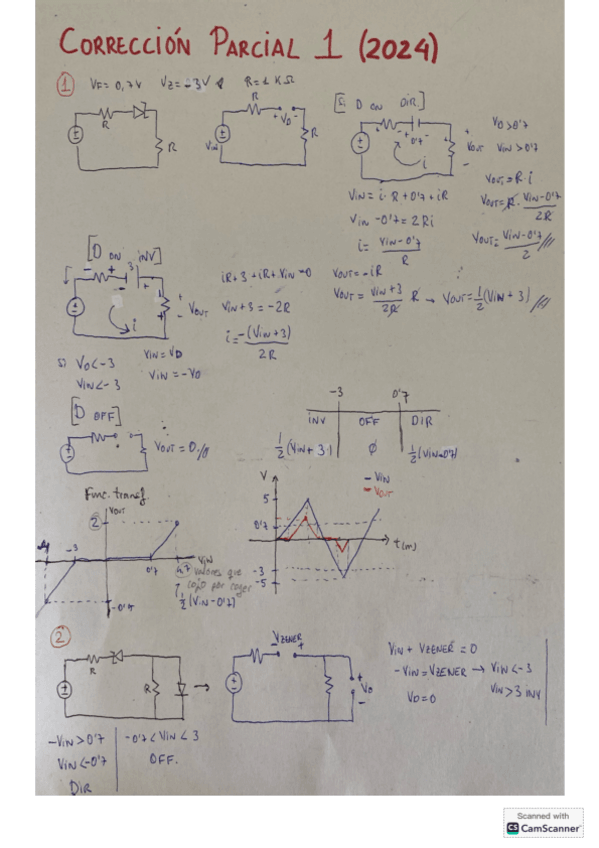 CORRECCIÓN PARCIAL 1 (2024)
① VF= 0,7V VZ= -3V R=1KΩ
R
R
R
VD
+ -
VIN
R
[Si D ON DIR]
+ 0'7 -
i
+
VOUT
-
VD>0'7
VIN>0'7
VIN= i·R+0'7+iR
VIN-0'7=2Ri
i= VIN-0'7 / R
VOUT=R·i
VOUT=R·VIN-0'7 / 2R
VOUT= VIN-0'7 / 2
[D ON INV]
3
i
+
VOUT
-
iR+3+iR+VIN=0
VIN+3=-2R
i= -(VIN+3) / 2R
VOUT=-iR
VOUT= VIN+3 / 2R R → VOUT=1/2(VIN+3)
Si VD<-3
VIN<-3
VIN=VD
VIN=-VD
[D OFF]
VOUT=0
-3 0'7
INV OFF DIR
1/2(VIN+3) Ø 1/2(VIN-0'7)
Func. transf
VOUT
2
-3
0'7
VIN
valores que cojo por coger
1/2(VIN-0'7)
-0'7
V
5
0'7
-3
-5
- VIN
- VOUT
t(m)
②
R
R
→
- VZENER +
+
VD
-
VIN+VZENER=0
-VIN=VZENER → VIN<-3
VD=0
VIN>3 INV
-VIN>0'7
VIN<-0'7
DIR
-0'7<VIN<3
OFF.
Scanned with
CS CamScanner